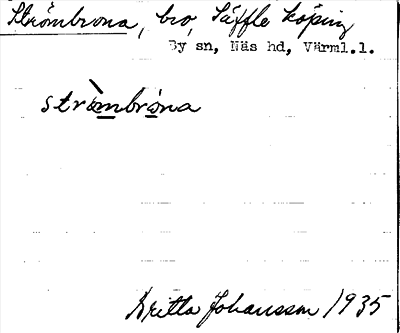 Strömbrona, bro, Säffle köping
By sn, Näs hd, Värml.l.
strò̀mbróna
Britta Johansson 1935